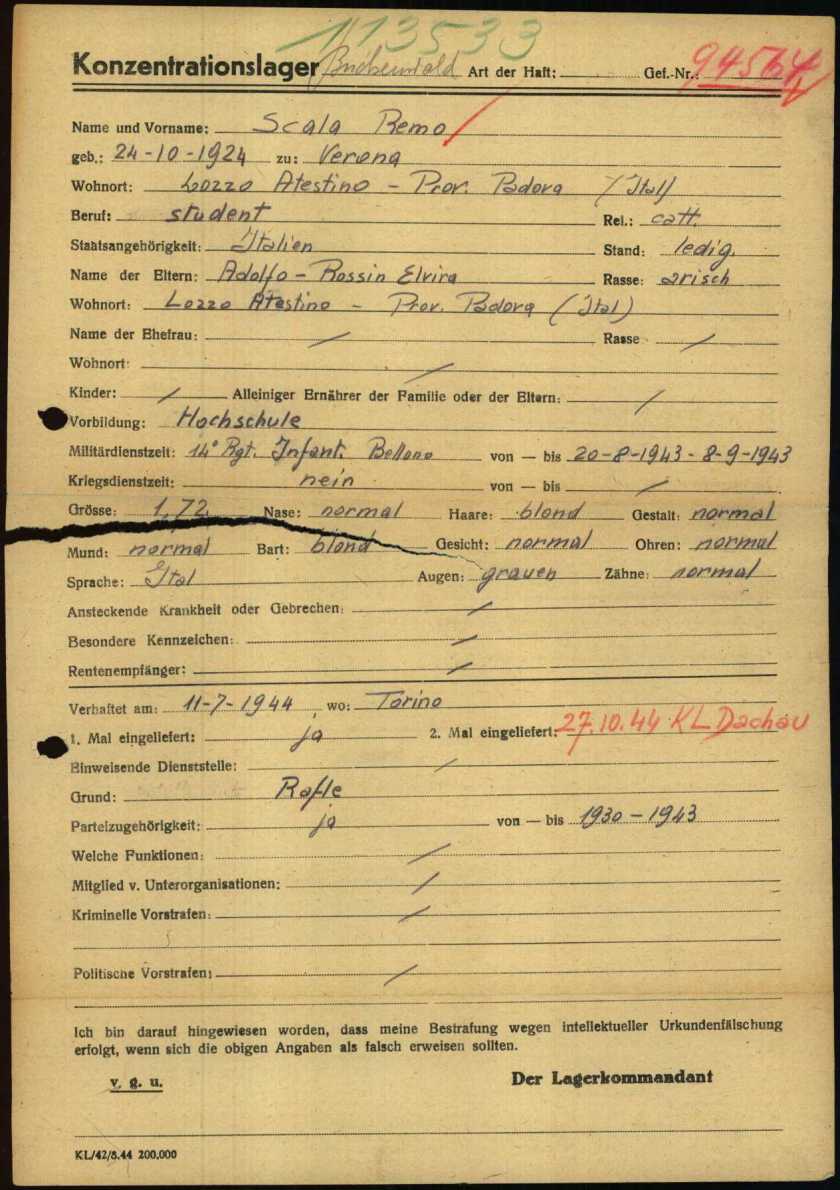 113533
Konzentrationslager Buchenwald Art der Haft: Gef.-Nr.: 94564
Name und Vorname: Scala Remo
geb.: 24-10-1924 zu: Verona
Wohnort: Lozzo Atestino - Prov. Padova (Ital)
Beruf: student Rel.: catt.
Staatsangehörigkeit: Italien Stand: ledig.
Name der Eltern: Adolfo - Rossin Elvira Rasse: arisch
Wohnort: Lozzo Atestino - Prov. Padova (Ital)
Name der Ehefrau: / Rasse /
Wohnort: /
Kinder: / Alleiniger Ernährer der Familie oder der Eltern: /
Vorbildung: Hochschule
Militärdienstzeit: 14° Rgt. Infant. Belluno von — bis 20-8-1943 - 8-9-1943
Kriegsdienstzeit: nein von — bis /
Grösse: 1,72 Nase: normal Haare: blond Gestalt: normal
Mund: normal Bart: blond Gesicht: normal Ohren: normal
Sprache: Ital Augen: grauen Zähne: normal
Ansteckende Krankheit oder Gebrechen: /
Besondere Kennzeichen: /
Rentenempfänger: /
Verhaftet am: 11-7-1944 wo: Torino
1. Mal eingeliefert: ja 2. Mal eingeliefert: 27.10.44 KL Dachau
Einweisende Dienststelle: /
Grund: Rafle
Parteizugehörigkeit: ja von — bis 1930 - 1943
Welche Funktionen: /
Mitglied v. Unterorganisationen: /
Kriminelle Vorstrafen: /
Politische Vorstrafen: /
Ich bin darauf hingewiesen worden, dass meine Bestrafung wegen intellektueller Urkundenfälschung
erfolgt, wenn sich die obigen Angaben als falsch erweisen sollten.
v. g. u. Der Lagerkommandant
KL/42/8.44 200.000